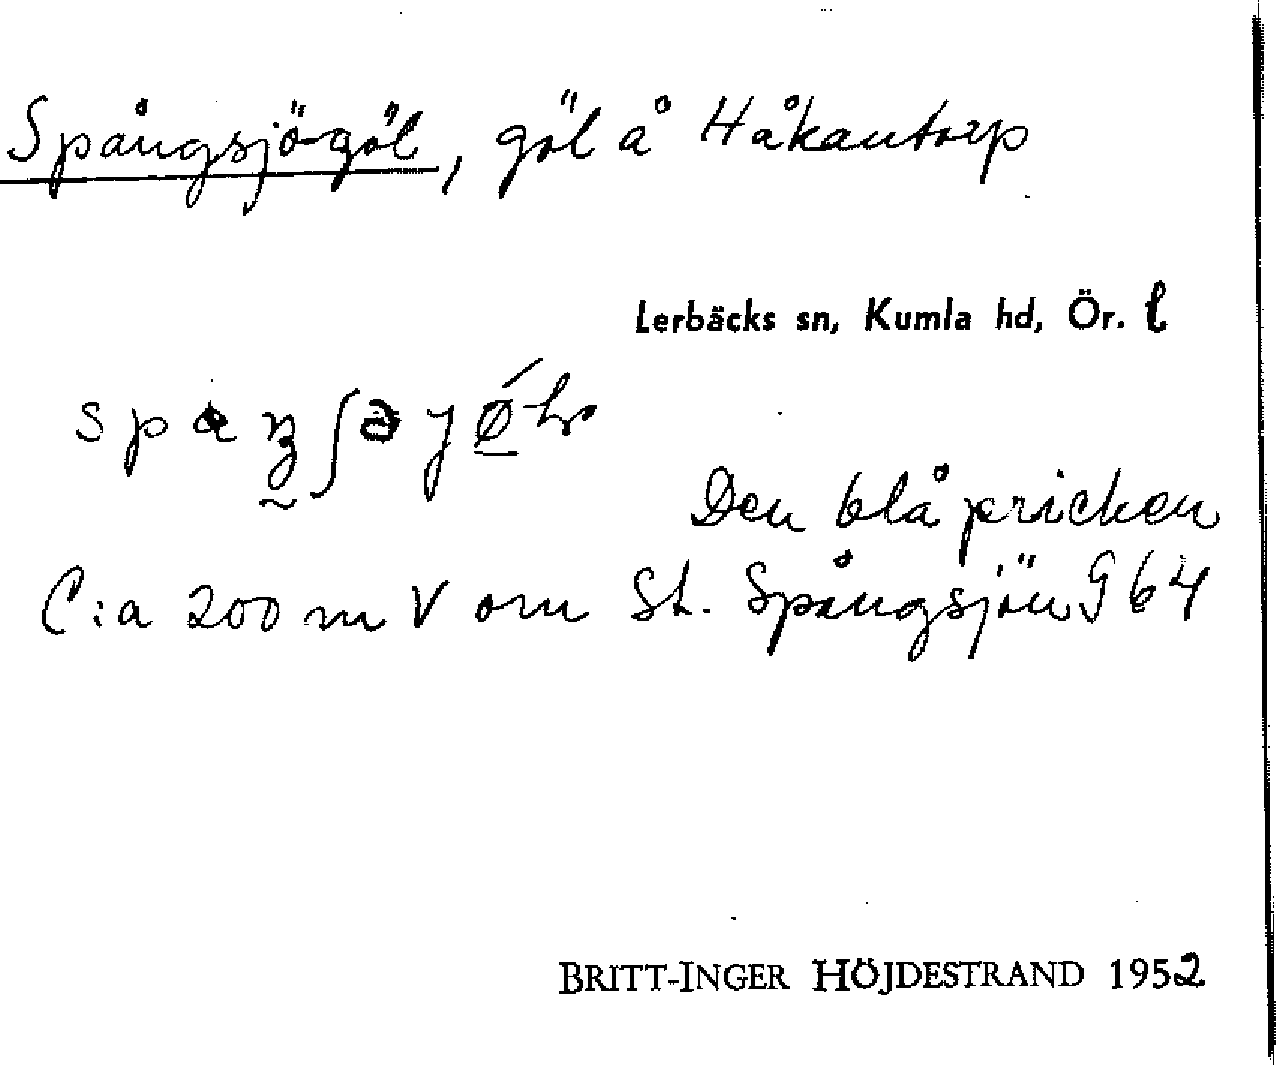 Spångsjögöl, göl å Håkantorp
Lerbäcks sn, Kumla hd, Ör. l
Den blå pricken
C:a 200 m V om St. Spångsjön G 64
BRITT-INGER HÖJDESTRAND 1952